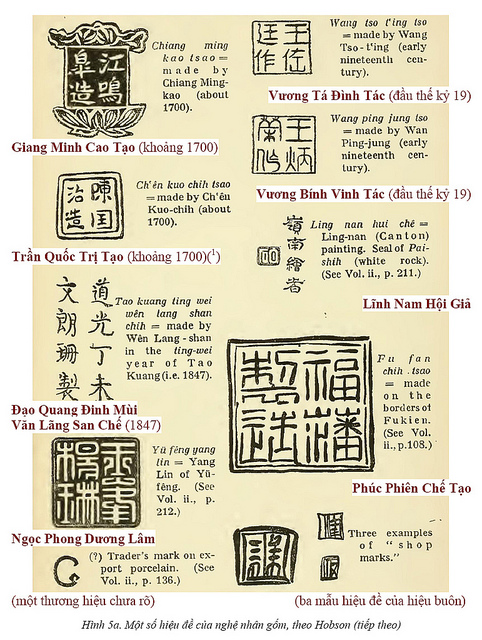 江鳴
皐造
Chiang ming
kao tsao =
made by
Chiang Ming-
kao (about
1700).
Giang Minh Cao Tạo (khoảng 1700)
王佐
廷作
Wang tso t'ing tso
= made by Wang
Tso-t'ing (early
nineteenth cen-
tury).
Vương Tá Đình Tác (đầu thế kỷ 19)
陳国
治造
Ch'ên kuo chih tsao
= made by Ch'ên
Kuo-chih (about
1700).
Trần Quốc Trị Tạo (khoảng 1700)(¹)
王炳
榮作
Wang ping jung tso
= made by Wan
Ping-jung (early
nineteenth cen-
tury).
Vương Bính Vinh Tác (đầu thế kỷ 19)
嶺南繪者
Ling nan hui chê =
Ling-nan (Canton)
painting. Seal of Pai-
shih (white rock).
(See Vol. ii., p. 211.)
Lĩnh Nam Hội Giả
道光丁未
文朗珊製
Tao kuang ting wei
wên lang shan
chih = made by
Wên Lang-shan
in the ting-wei
year of Tao
Kuang (i.e. 1847).
Đạo Quang Đinh Mùi
Văn Lãng San Chế (1847)
福藩
製造
Fu fan
chih tsao
= made
on the
borders of
Fukien.
(See Vol.
ii., p.108.)
Phúc Phiên Chế Tạo
玉峯
楊琳
Yü fêng yang
lin = Yang
Lin of Yü-
fêng. (See
Vol. ii., p.
212.)
Ngọc Phong Dương Lâm
(?) Trader's mark on ex-
port porcelain. (See
Vol. ii., p. 136.)
(một thương hiệu chưa rõ)
Three examples
of "shop
marks."
(ba mẫu hiệu đề của hiệu buôn)
Hình 5a. Một số hiệu đề của nghệ nhân gốm, theo Hobson (tiếp theo)